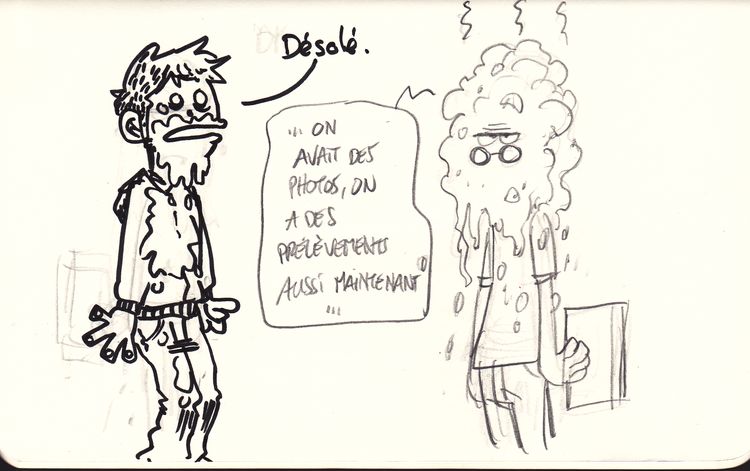 Désolé.
... ON
AVAIT DES
PHOTOS, ON
A DES
PRÉLÈVEMENTS
AUSSI MAINTENANT
...